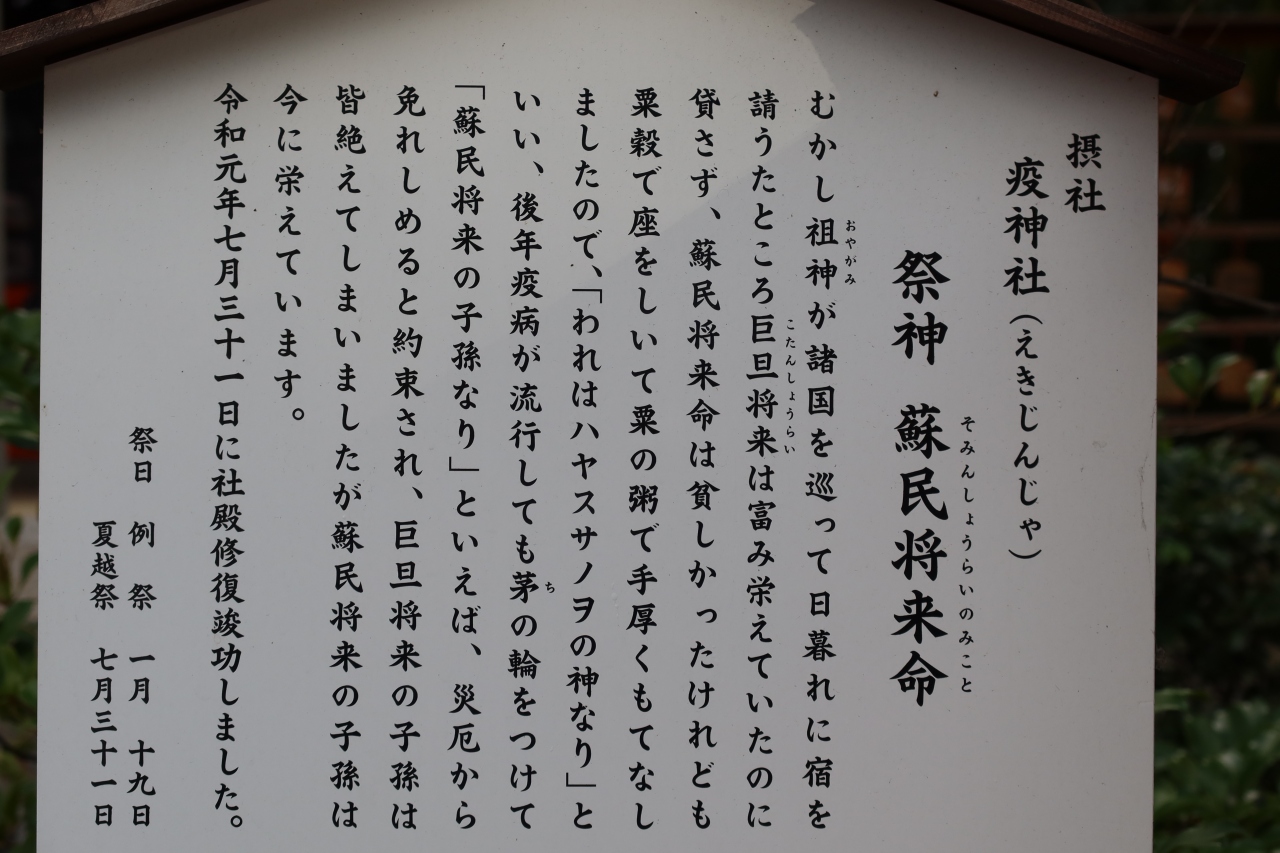 摂社
疫神社（えきじんじゃ）
祭神 蘇民将来命
そみんしょうらいのみこと
むかし祖神が諸国を巡って日暮れに宿を
おやがみ
請うたところ巨旦将来は富み栄えていたのに
こたんしょうらい
貸さず、蘇民将来命は貧しかったけれども
粟穀で座をしいて粟の粥で手厚くもてなし
ましたので、「われはハヤスサノヲの神なり」と
いい、後年疫病が流行しても茅の輪をつけて
ち
「蘇民将来の子孫なり」といえば、災厄から
免れしめると約束され、巨旦将来の子孫は
皆絶えてしまいましたが蘇民将来の子孫は
今に栄えています。
令和元年七月三十一日に社殿修復竣功しました。
祭日 例祭 一月 十九日
夏越祭 七月三十一日